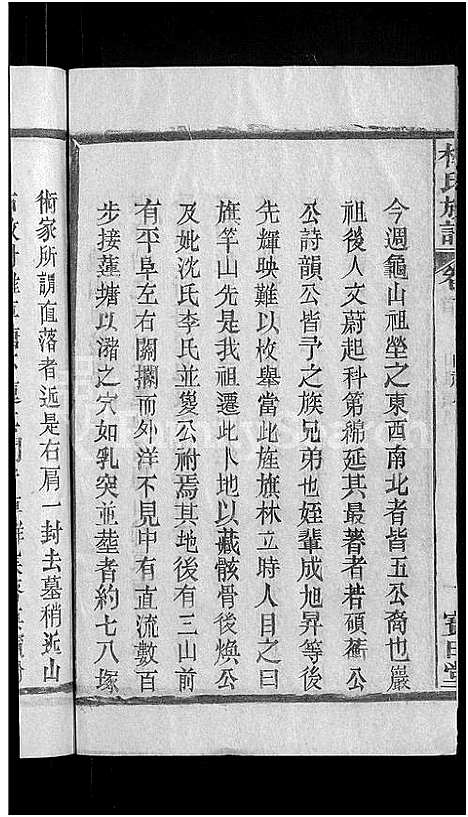 氏族譜
今週龜山祖塋之東西南北者皆五公裔也巖
祖後人文蔚起科第綿延其最著者若碩衢公
公詩韻公皆予之族兄弟也姪輩成旭昇等後
先輝映難以枚舉當此旌旗林立時人目之曰
旗竿山先是我祖遷此卜地以藏骸骨後煥公
及妣沈氏李氏並㚇公祔焉其地後有三山前
有平阜左右關攔而外洋不見中有直流數百
步接蓮塘以潴之穴如乳突並塟者約七八塚
術家所謂直落者近是右肩一封去墓稍近山